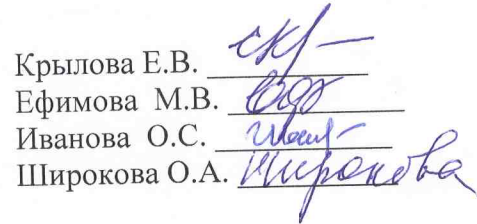 Крылова Е.В.
Ефимова М.В.
Иванова О.С.
Широкова О.А. Широкова